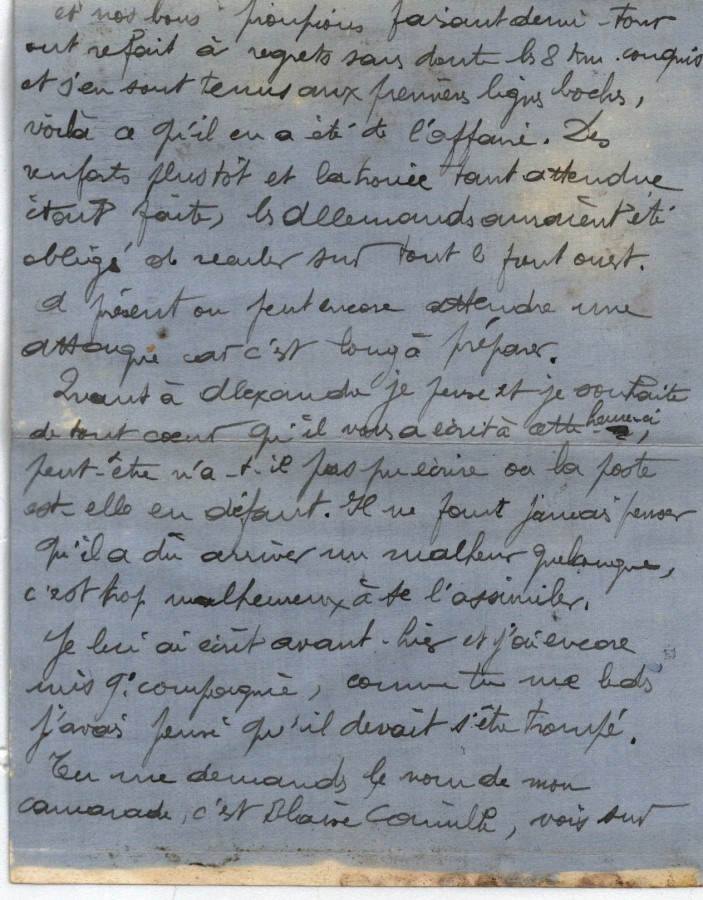 et nos bons pioupious faisant demi-tour
ont refait à regrets sans doute les 8 km. conquis
et s'en sont tenus aux premières lignes boches,
voilà ce qu'il en a été de l'affaire. Des
renforts plus tôt et la trouée tant attendue
était faite, les Allemands auraient été
obligé de reculer sur tout le front ouest.
A présent on peut encore attendre une
attaque car c'est long à préparer.
Quant à Alexandre je pense et je souhaite
de tout cœur qu'il vous a écrit à cette heure-ci,
peut-être n'a-t-il pas pu écrire ou la poste
est-elle en défaut. Il ne faut jamais penser
qu'il a dû arriver un malheur quelconque,
c'est trop malheureux à se l'assimiler.
Je lui ai écrit avant-hier et j'ai encore
mis 9e compagnie, comme tu me
j'avais pensé qu'il devait s'être trompé.
Tu me demands le nom de mon
camarade, c'est Blaise Camille, vois sur